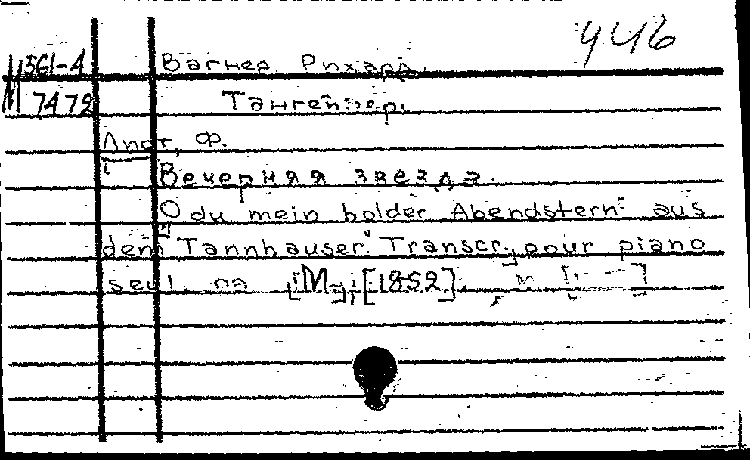 446
М 561-4 Вагнер Рихард.
7479 Тангейзер.
Лист, Ф.
Вечерняя звезда.
O du mein holder Abendstern aus
dem Tannhauser" Transcr. pour piano
seul. [М.], [1852].